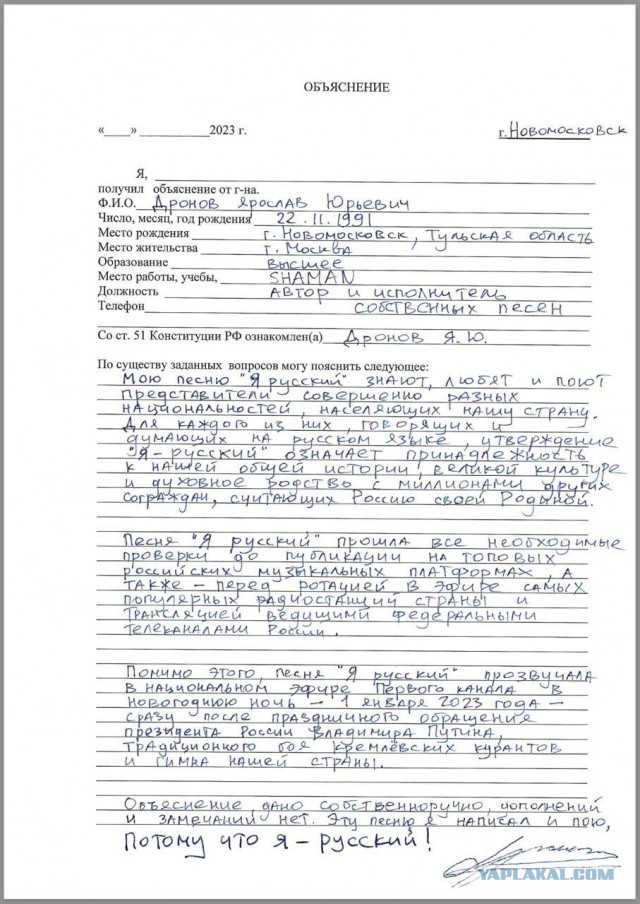 ОБЪЯСНЕНИЕ
«____» ___________2023 г. г.Новомосковск
Я,
получил объяснение от г-на.
Ф.И.О. Дронов Ярослав Юрьевич
Число, месяц, год рождения 22.11.1991
Место рождения г. Новомосковск, Тульская область
Место жительства г. Москва
Образование высшее
Место работы, учебы, SHAMAN
Должность автор и исполнитель
Телефон собственных песен
Со ст. 51 Конституции РФ ознакомлен(а) Дронов Я.Ю.
По существу заданных вопросов могу пояснить следующее:
Мою песню "Я русский" знают, любят и поют
представители совершенно разных
национальностей, населяющих нашу страну.
Для каждого из них, говорящих и
думающих на русском языке, утверждение
"Я - русский" означает принадлежность
к нашей общей истории, великой культуре
и духовное родство с миллионами других
сограждан, считающих Россию своей Родиной.
Песня "Я русский" прошла все необходимые
проверки до публикации на топовых
российских музыкальных платформах, а
также - перед ротацией в эфире самых
популярных радиостанций страны и
трансляцией ведущими федеральными
телеканалами России.
Помимо этого, песня "Я русский" прозвучала
в национальном эфире Первого канала в
новогоднюю ночь - 1 января 2023 года -
сразу после праздничного обращения
президента России Владимира Путина,
традиционного боя кремлёвских курантов
и гимна нашей страны.
Объяснение дано собственноручно, дополнений
и замечаний нет. Эту песню я написал и пою,
потому что я - русский!
YAPLAKAL.COM